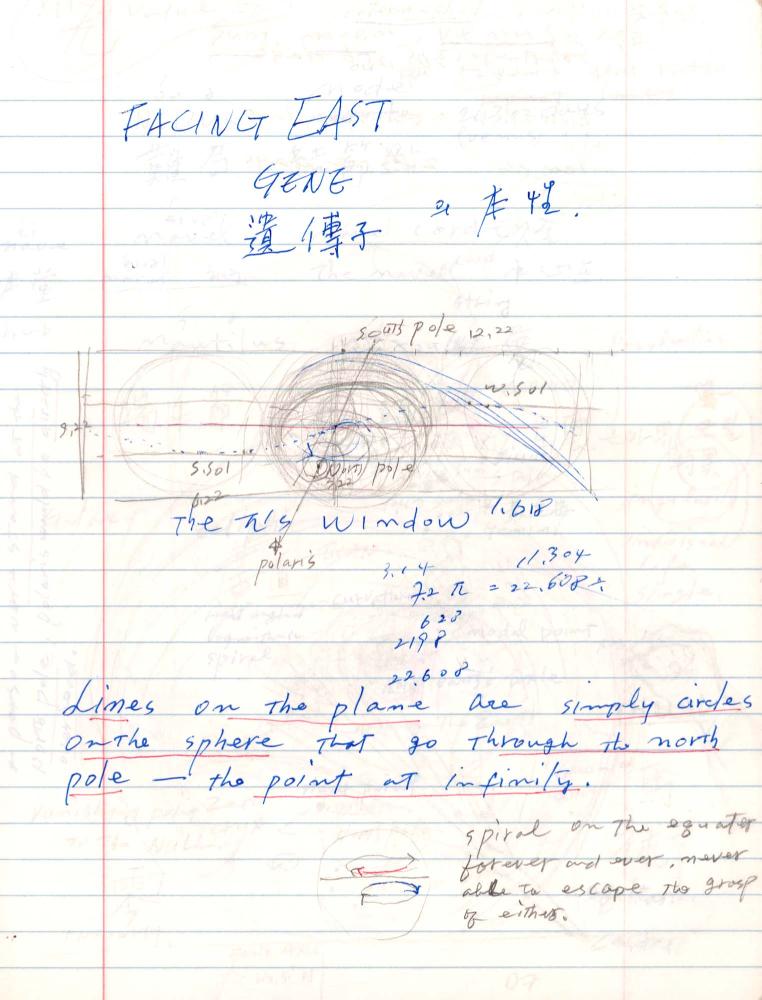 FACING EAST
GENE
遺傳子 의 本性.
South pole 12,22
W.Sol
9,22
S.Sol
North pole
3,22
6,22
The π's window 1.618
polaris
3.14 11.304
7.2 π = 22.608 2.
628
2198
22.608
Lines on the plane are simply circles
on the sphere that go through the north
pole — the point at infinity.
spiral on the equater
forever and ever, never
able to escape the grasp
of either.